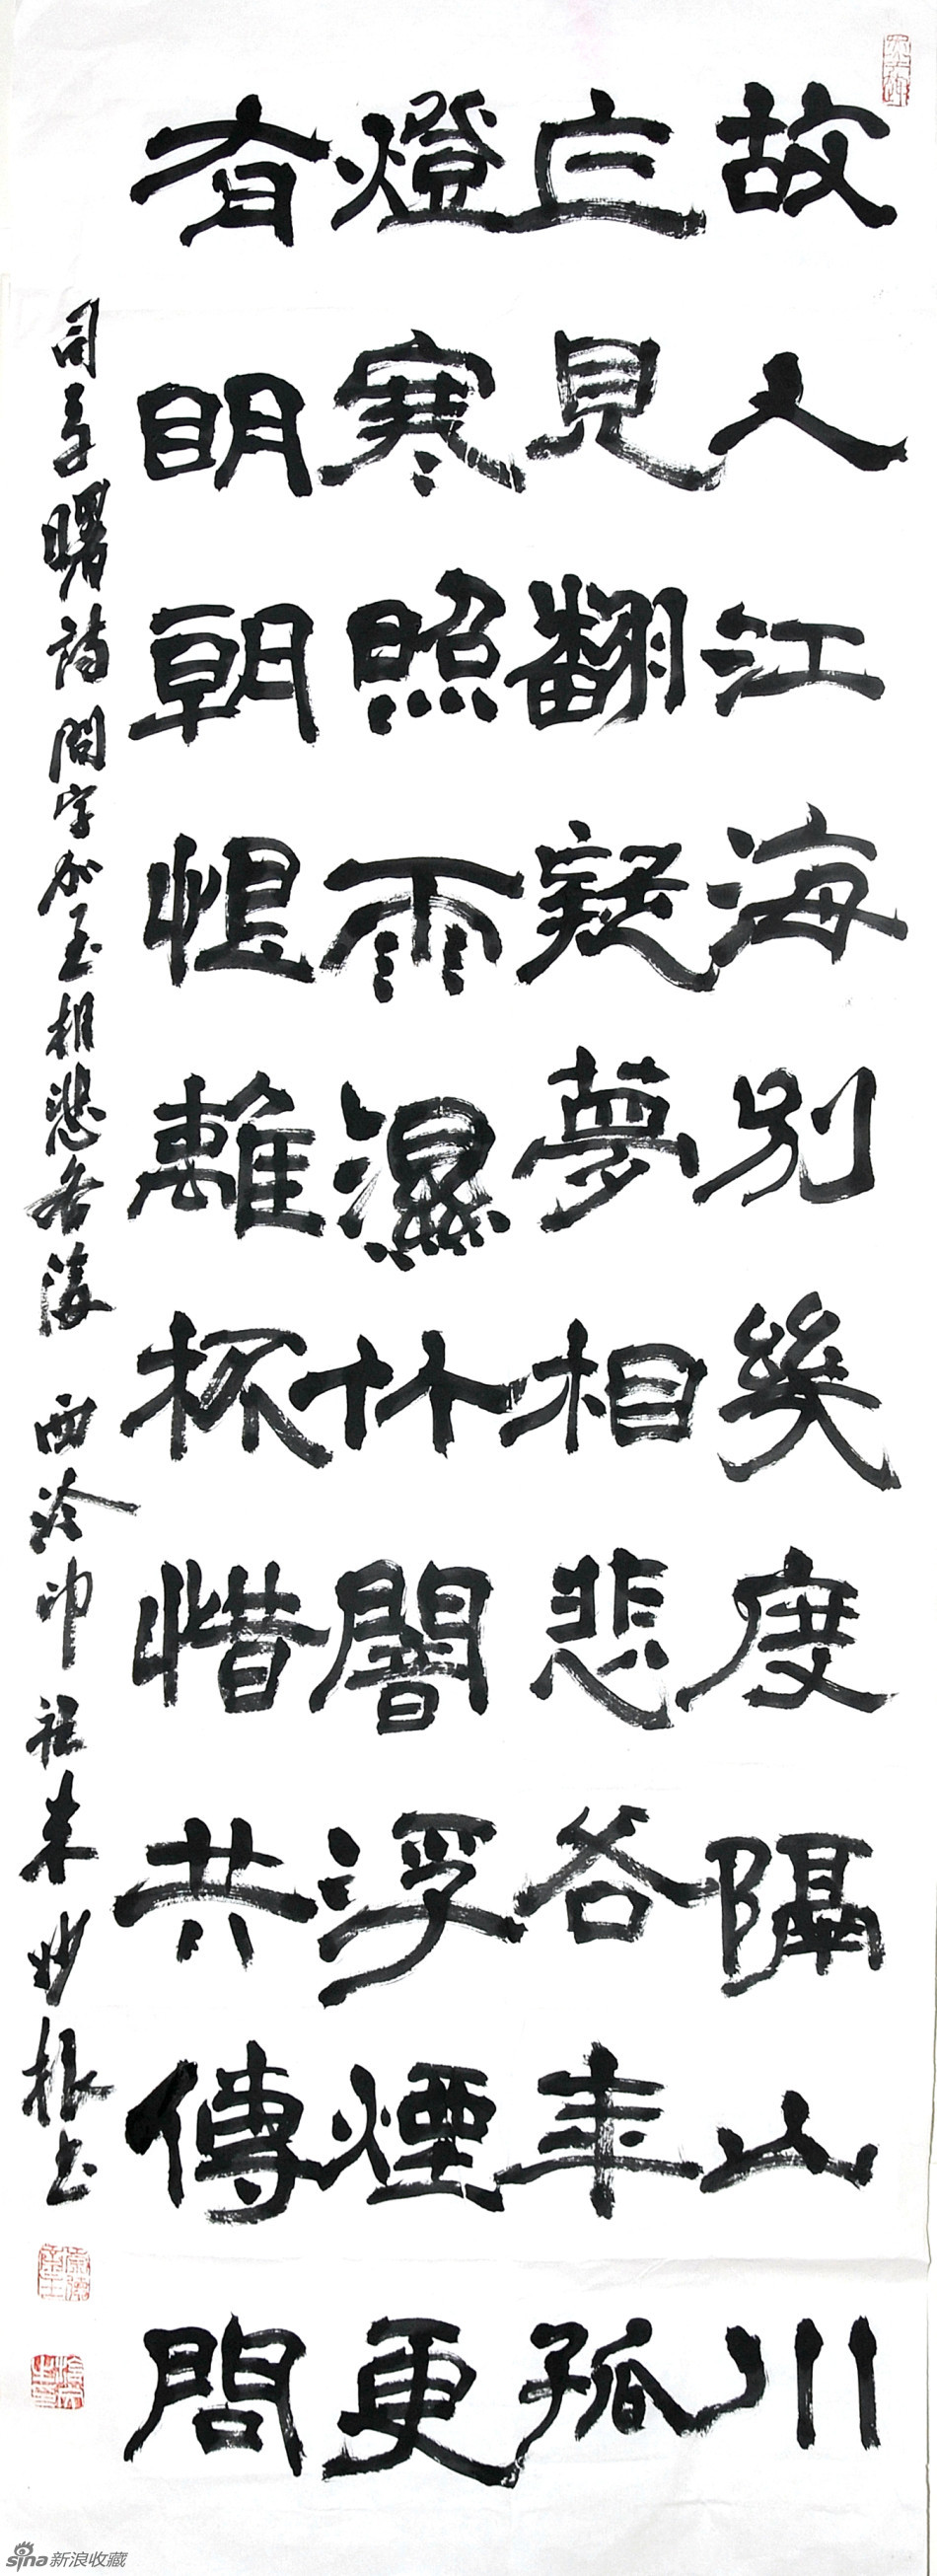 故人江海別幾度隔山川
乍見翻疑夢相悲各年孤
燈寒照雨濕竹闇浮煙更
有明朝恨離杯惜共傳問
司空曙詩問字加至相悲各後 西泠印社朱妙根书
sina新浪收藏